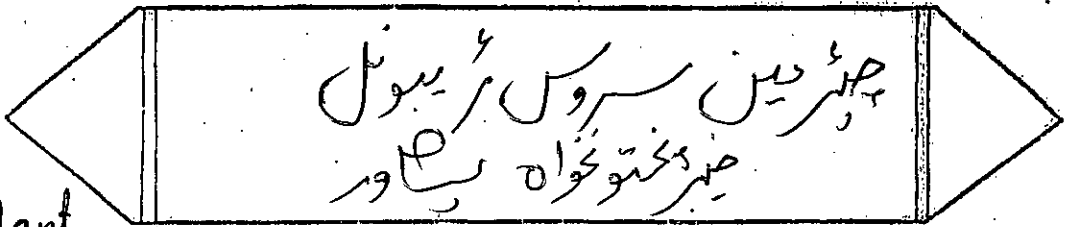 چئرمین سروس ٹریبونل
خیبر پختونخواہ پشاور
lant